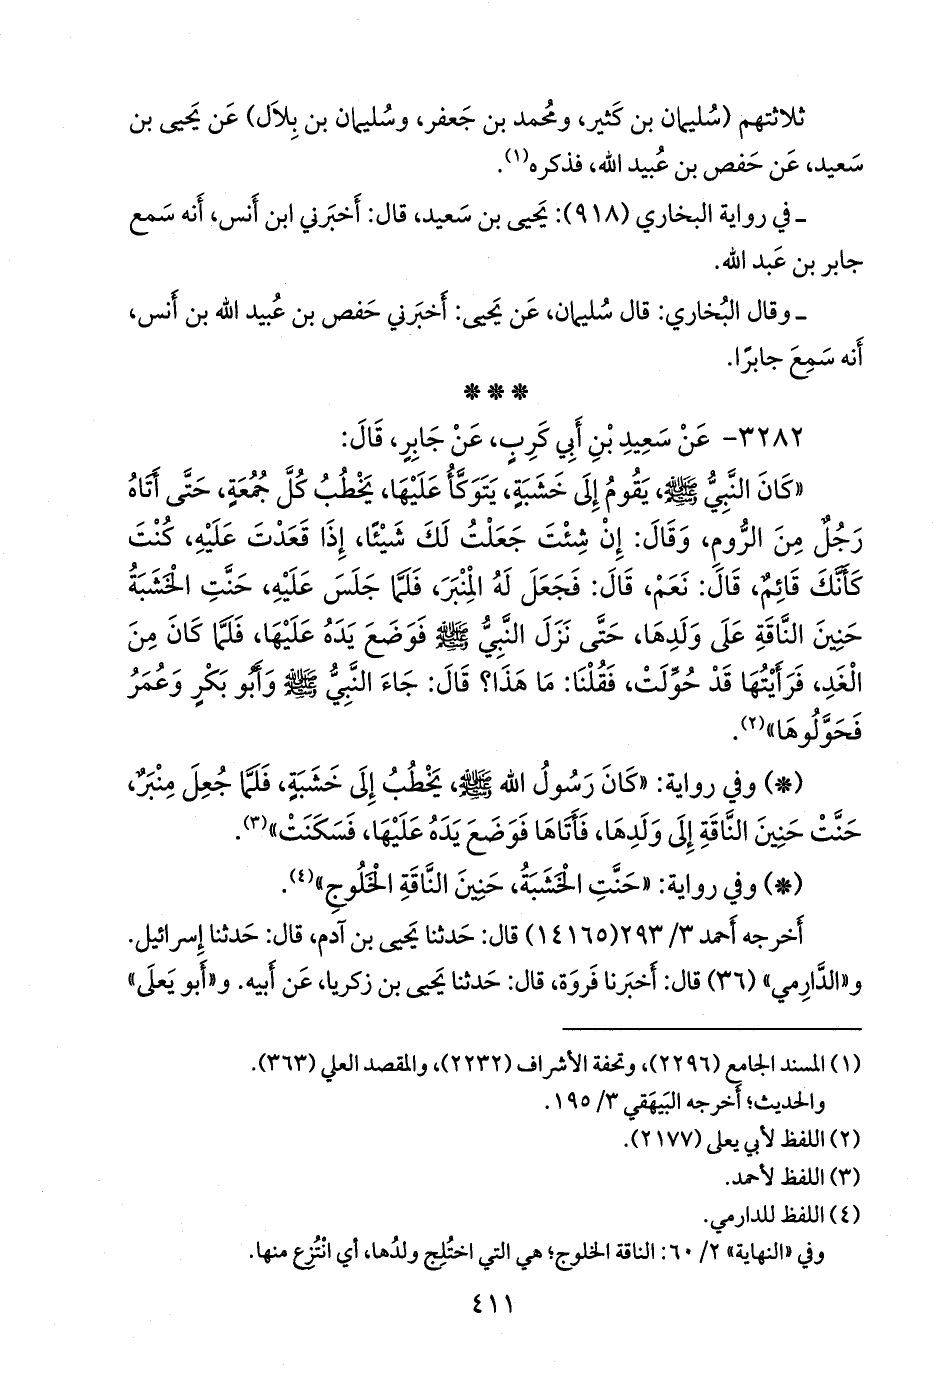 ثلاثتهم (سُليمان بن كَثير، ومُحمد بن جَعفر، وسُليمان بن بِلاَل) عَن يَحيى بن
سَعيد، عَن حَفص بن عُبيد الله، فذكره(١).
ـ في رواية البخاري (٩١٨): يَحيى بن سَعيد، قال: أَخبَرني ابن أَنس، أَنه سَمع
جابر بن عَبد الله.
ـ وقال البُخاري: قال سُليمان، عَن يَحيى: أَخبَرني حَفص بن عُبيد الله بن أَنس،
أَنه سَمِعَ جابرًا.
* * *
٣٢٨٢- عَنْ سَعِيدِ بْنِ أَبِي كَرِبٍ، عَنْ جَابِرٍ، قَالَ:
«كَانَ النَّبِيُّ ﷺ، يَقُومُ إِلَى خَشَبَةٍ، يَتَوَكَّأُ عَلَيْهَا، يَخْطُبُ كُلَّ جُمُعَةٍ، حَتَّى أَتَاهُ
رَجُلٌ مِنَ الرُّومِ، وَقَالَ: إِنْ شِئْتَ جَعَلْتُ لَكَ شَيْئًا، إِذَا قَعَدْتَ عَلَيْهِ، كُنْتَ
كَأَنَّكَ قَائِمٌ، قَالَ: نَعَمْ، قَالَ: فَجَعَلَ لَهُ المِنْبَرَ، فَلَمَّا جَلَسَ عَلَيْهِ، حَنَّتِ الْخَشَبَةُ
حَنِينَ النَّاقَةِ عَلَى وَلَدِهَا، حَتَّى نَزَلَ النَّبِيُّ ﷺ فَوَضَعَ يَدَهُ عَلَيْهَا، فَلَمَّا كَانَ مِنَ
الْغَدِ، فَرَأَيْتُهَا قَدْ حُوِّلَتْ، فَقُلْنَا: مَا هَذَا؟ قَالَ: جَاءَ النَّبِيُّ ﷺ وَأَبُو بَكْرٍ وَعُمَرُ
فَحَوَّلُوهَا»(٢).
(*) وفي رواية: «كَانَ رَسُولُ الله ﷺ، يَخْطُبُ إِلَى خَشَبَةٍ، فَلَمَّا جُعِلَ مِنْبَرٌ،
حَنَّتْ حَنِينَ النَّاقَةِ إِلَى وَلَدِهَا، فَأَتَاهَا فَوَضَعَ يَدَهُ عَلَيْهَا، فَسَكَنَتْ»(٣).
(*) وفي رواية: «حَنَّتِ الْخَشَبَةُ، حَنِينَ النَّاقَةِ الْخَلُوجِ»(٤).
أَخرجه أَحمد ٣/ ٢٩٣(١٤١٦٥) قال: حَدثنا يَحيى بن آدم، قال: حَدثنا إِسرائيل.
و«الدَّارِمي» (٣٦) قال: أَخبَرنا فَروَة، قال: حَدثنا يَحيى بن زكريا، عَن أَبيه. و«أَبو يَعلَى»
(١) المسند الجامع (٢٢٩٦)، وتحفة الأشراف (٢٢٣٢)، والمقصد العلي (٣٦٣).
والحديث؛ أَخرجه البَيهَقي ٣/ ١٩٥.
(٢) اللفظ لأبي يعلى (٢١٧٧).
(٣) اللفظ لأحمد.
(٤) اللفظ للدارمي.
وفي «النهاية» ٢/ ٦٠: الناقة الخلوج؛ هي التي اختُلِج ولدُها، أي انْتُزِع منها.
٤١١